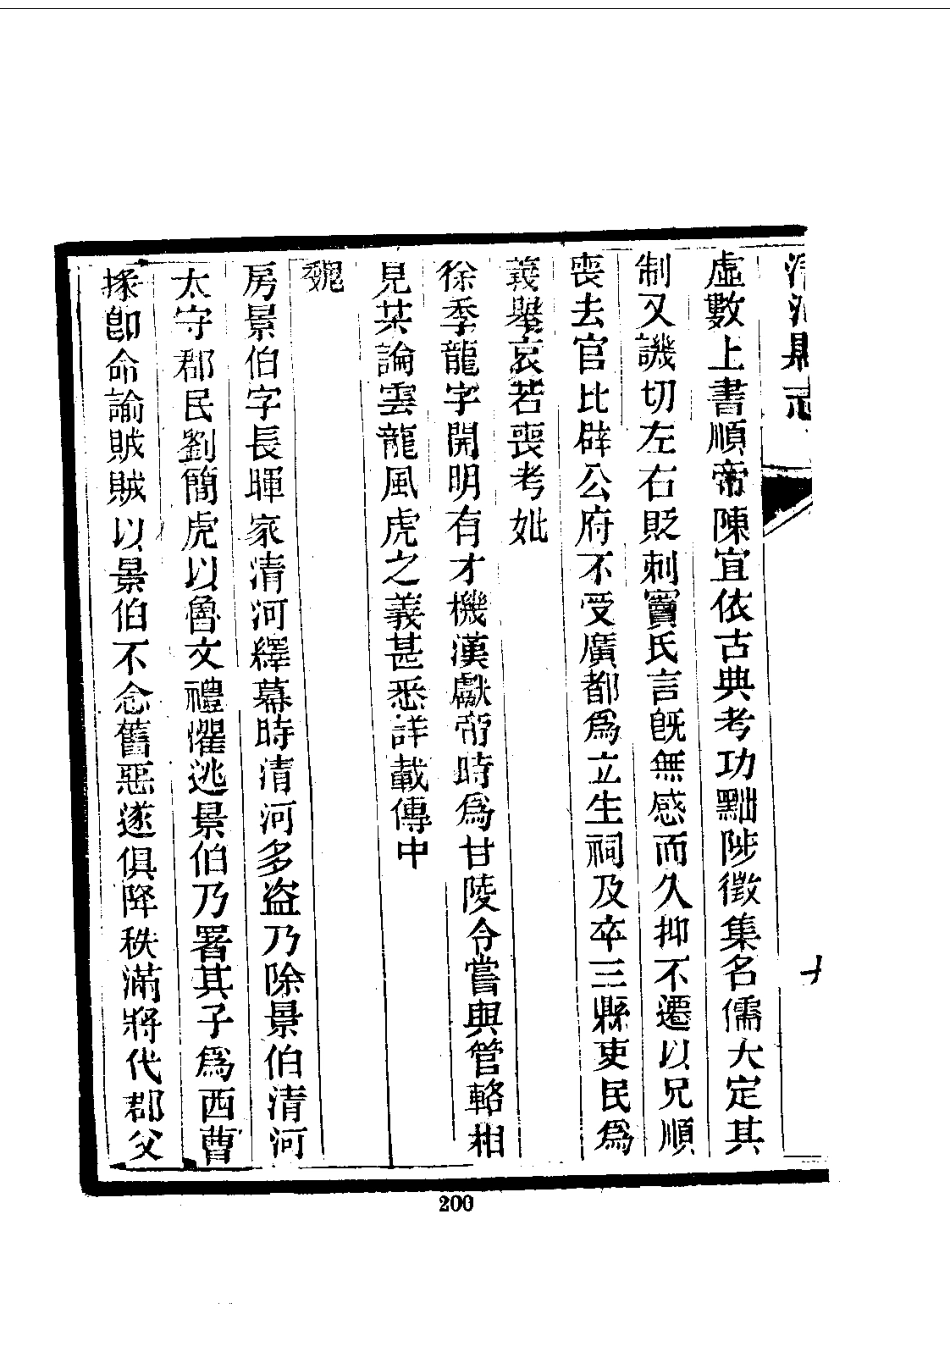 清河縣志
虛數上書順帝陳宜依古典考功黜陟徵集名儒大定其
制又譏切左右貶刺竇氏言既無感而久抑不遷以兄順
喪去官比辟公府不受廣都爲立生祠及卒三縣吏民爲
義舉哀若喪考妣
徐季龍字開明有才機漢獻帝時爲甘陵令嘗與管輅相
見某論雲龍風虎之義甚悉詳載傳中
魏
房景伯字長暉家清河繹幕時清河多盜乃除景伯清河
太守郡民劉簡虎以魯文禮懼逃景伯乃署其子爲西曹
掾卽命諭賊賊以景伯不念舊惡遂俱降秩滿將代郡父
200